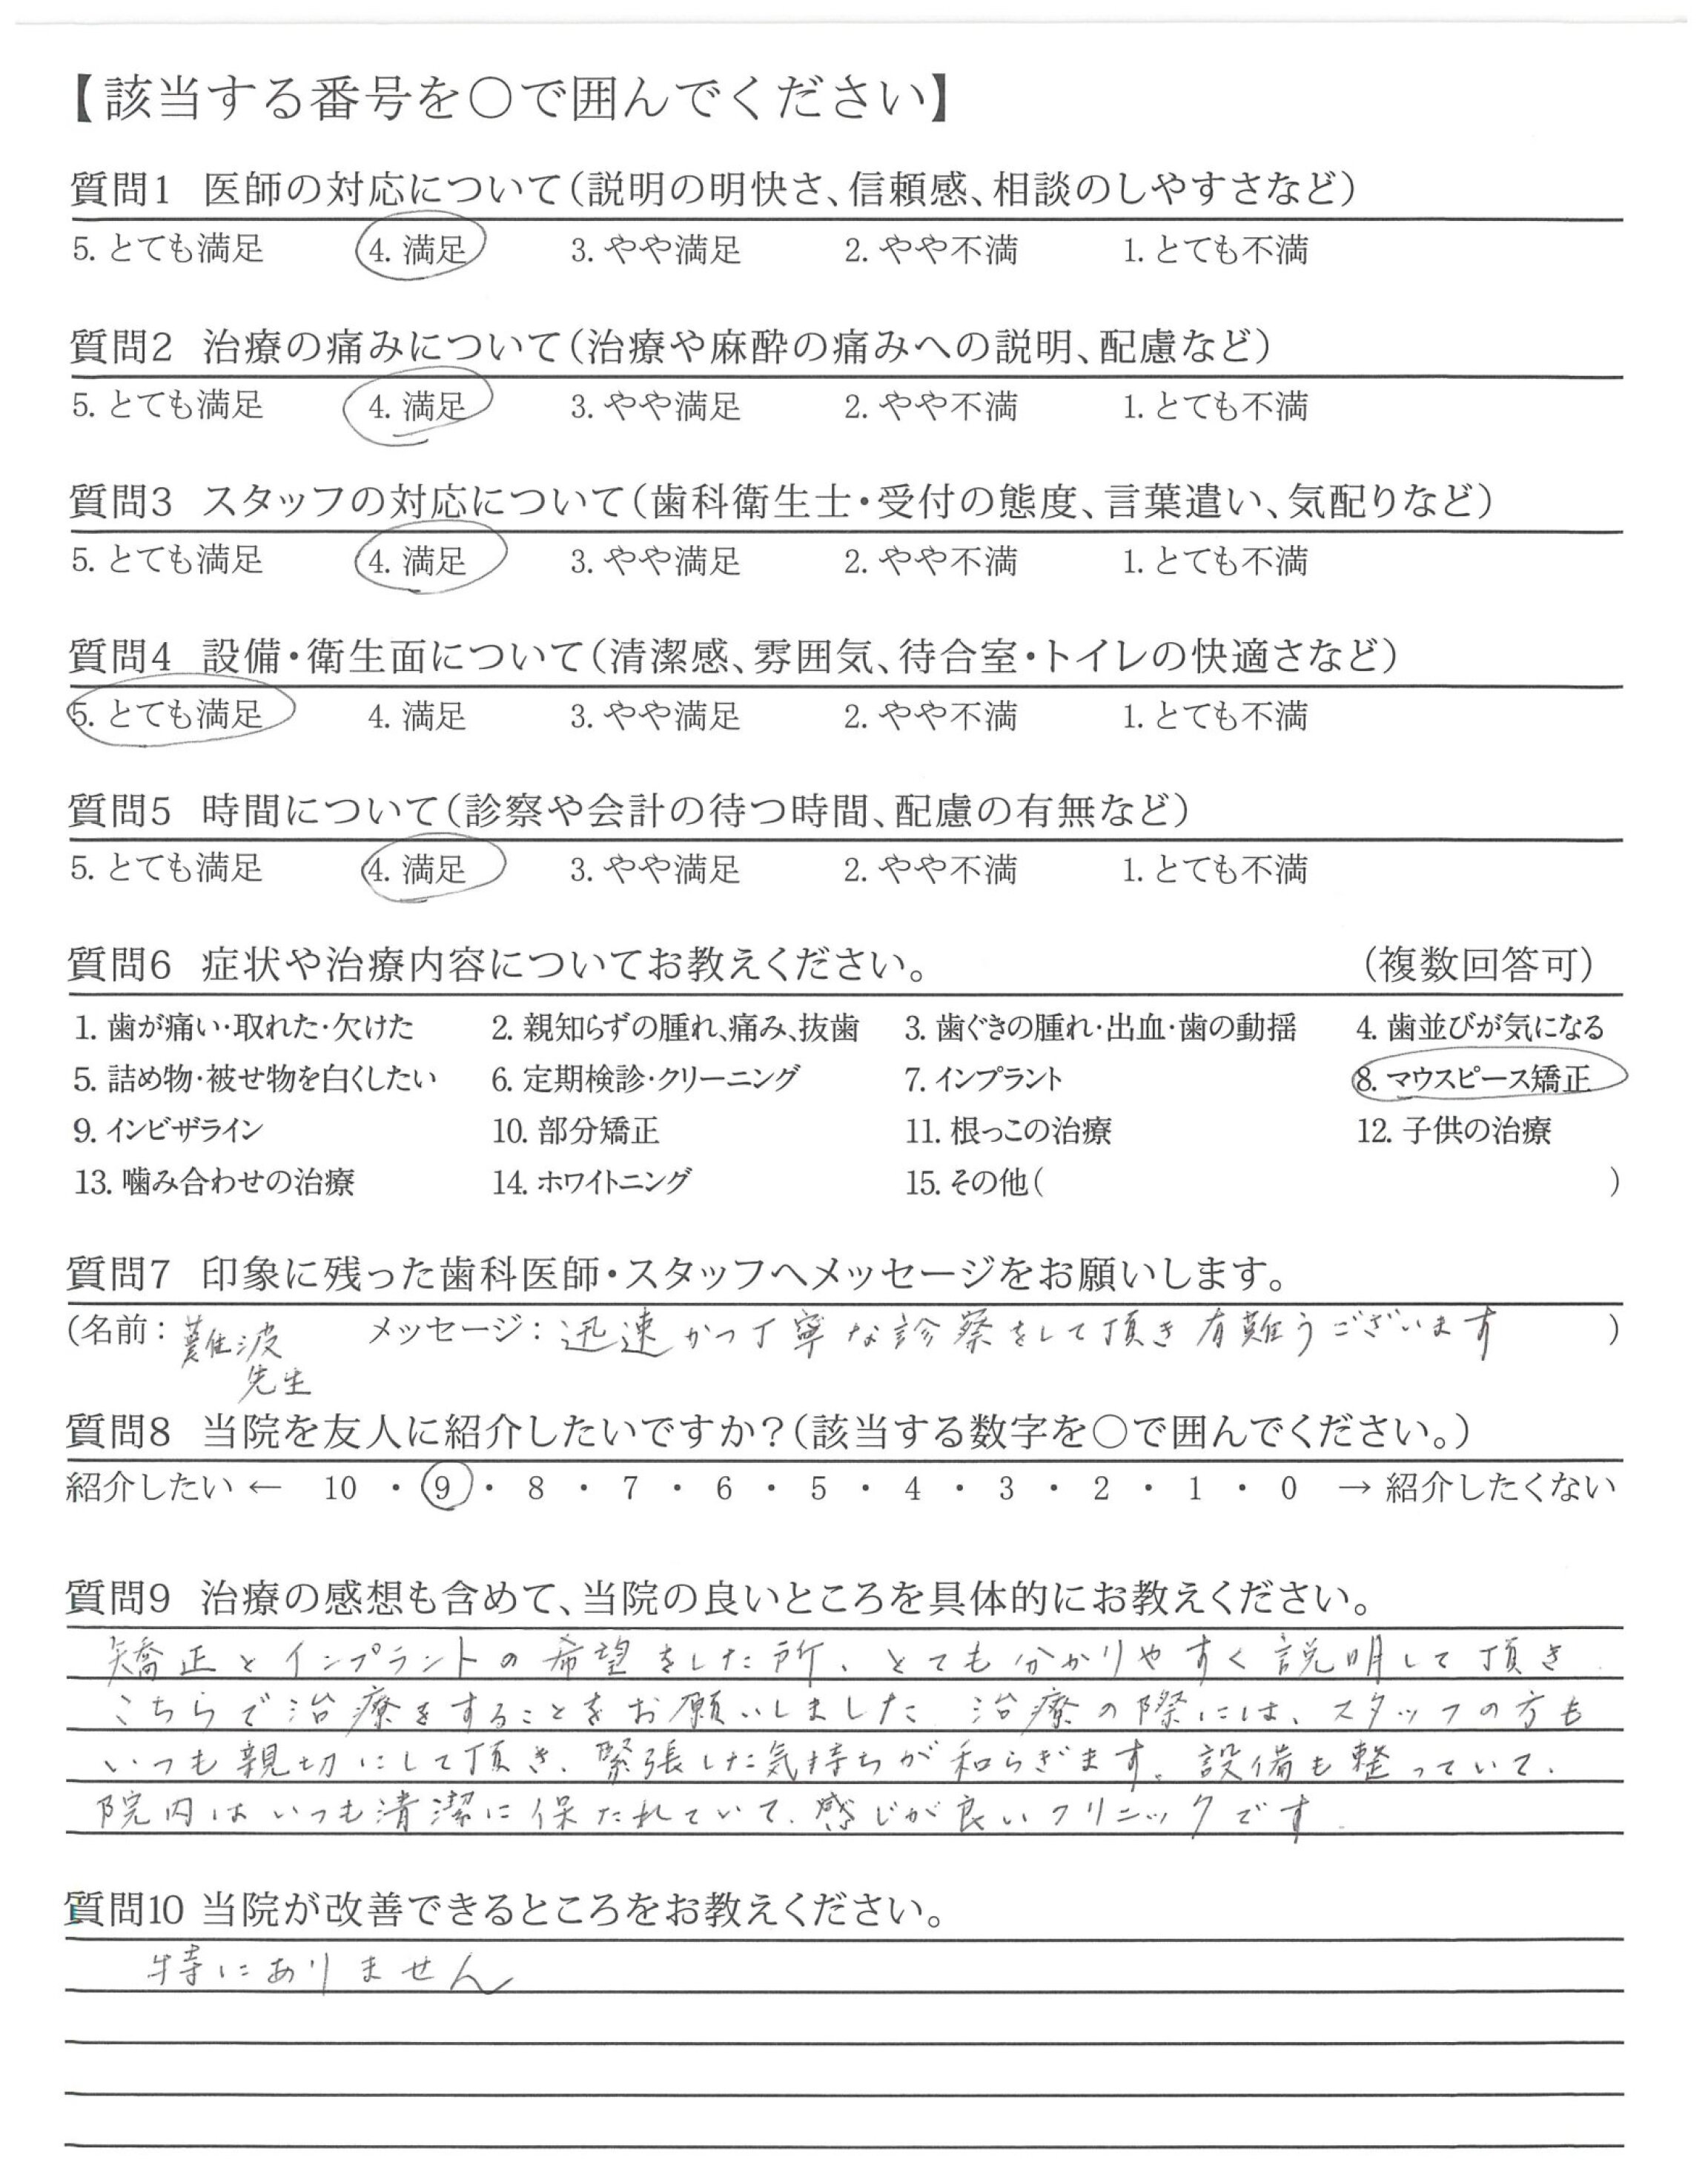 【該当する番号を〇で囲んでください】
質問1 医師の対応について(説明の明快さ、信頼感、相談のしやすさなど)
5. とても満足 4. 満足 3. やや満足 2. やや不満 1. とても不満
質問2 治療の痛みについて(治療や麻酔の痛みへの説明、配慮など)
5. とても満足 4. 満足 3. やや満足 2. やや不満 1. とても不満
質問3 スタッフの対応について(歯科衛生士・受付の態度、言葉遣い、気配りなど)
5. とても満足 4. 満足 3. やや満足 2. やや不満 1. とても不満
質問4 設備・衛生面について(清潔感、雰囲気、待合室・トイレの快適さなど)
5. とても満足 4. 満足 3. やや満足 2. やや不満 1. とても不満
質問5 時間について(診察や会計の待つ時間、配慮の有無など)
5. とても満足 4. 満足 3. やや満足 2. やや不満 1. とても不満
質問6 症状や治療内容についてお教えください。 (複数回答可)
1. 歯が痛い・取れた・欠けた 2. 親知らずの腫れ、痛み、抜歯 3. 歯ぐきの腫れ・出血・歯の動揺 4. 歯並びが気になる
5. 詰め物・被せ物を白くしたい 6. 定期検診・クリーニング 7. インプラント 8. マウスピース矯正
9. インビザライン 10. 部分矯正 11. 根っこの治療 12. 子供の治療
13. 噛み合わせの治療 14. ホワイトニング 15. その他( )
質問7 印象に残った歯科医師・スタッフへメッセージをお願いします。
(名前: 難波 メッセージ: 迅速かつ丁寧な診察をして頂き有難うございます )
先生
質問8 当院を友人に紹介したいですか?(該当する数字を〇で囲んでください。)
紹介したい ← 10 ・ 9 ・ 8 ・ 7 ・ 6 ・ 5 ・ 4 ・ 3 ・ 2 ・ 1 ・ 0 → 紹介したくない
質問9 治療の感想も含めて、当院の良いところを具体的にお教えください。
矯正とインプラントの希望をした所、とても分かりやすく説明して頂き
こちらで治療をすることをお願いしました 治療の際には、スタッフの方も
いつも親切にして頂き、緊張した気持ちが和らぎます。設備も整っていて、
院内はいつも清潔に保たれていて、感じが良いクリニックです
質問10 当院が改善できるところをお教えください。
特にありません